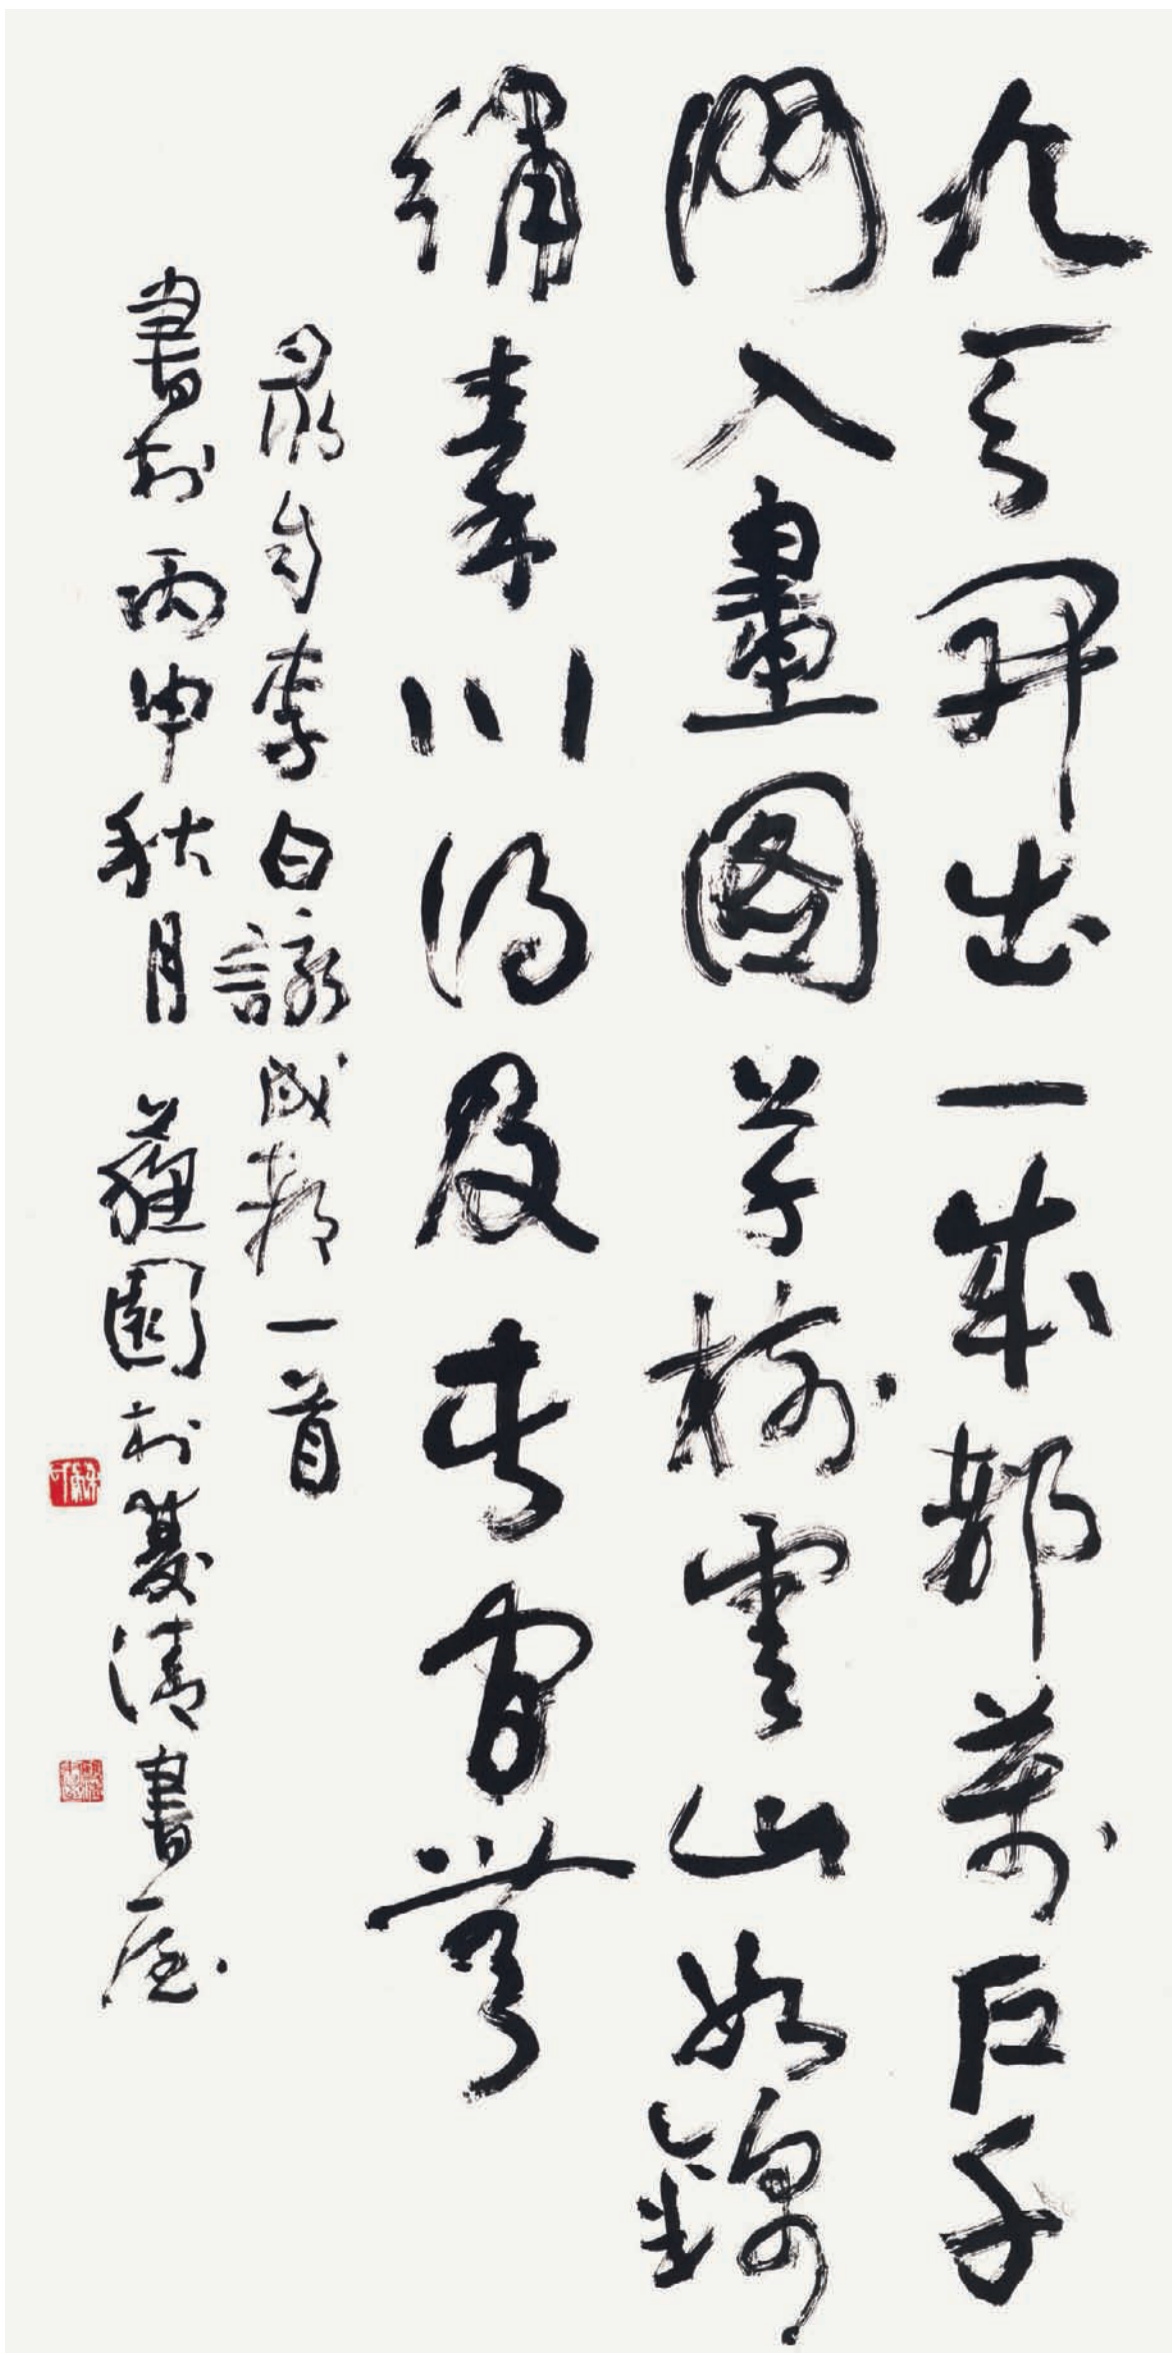 九天開出一成都萬戶千
門入畫图草樹雲山如錦
繡秦川得及此間無
李白詠成都一首
書於丙申秋月於清書屋